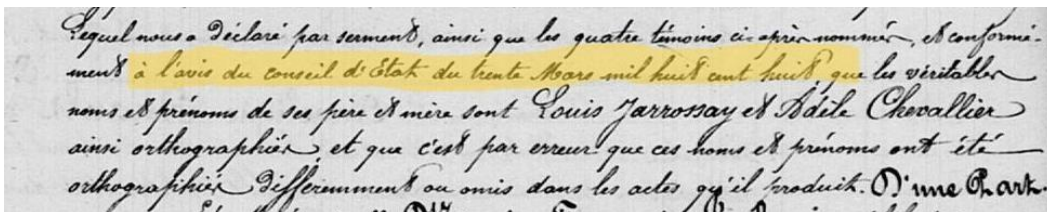 Lequel nous a déclaré par serment, ainsi que les quatre témoins ci-après nommés, et conformé-
ment à l'avis du conseil d'État du trente Mars mil huit cent huit, que les véritables
noms et prénoms de ses père et mère sont Louis Jarrossay et Adèle Chevallier
ainsi orthographiés, et que c'est par erreur que ces noms et prénoms ont été
orthographiés différemment ou omis dans les actes qu'il produit. D'une Part.